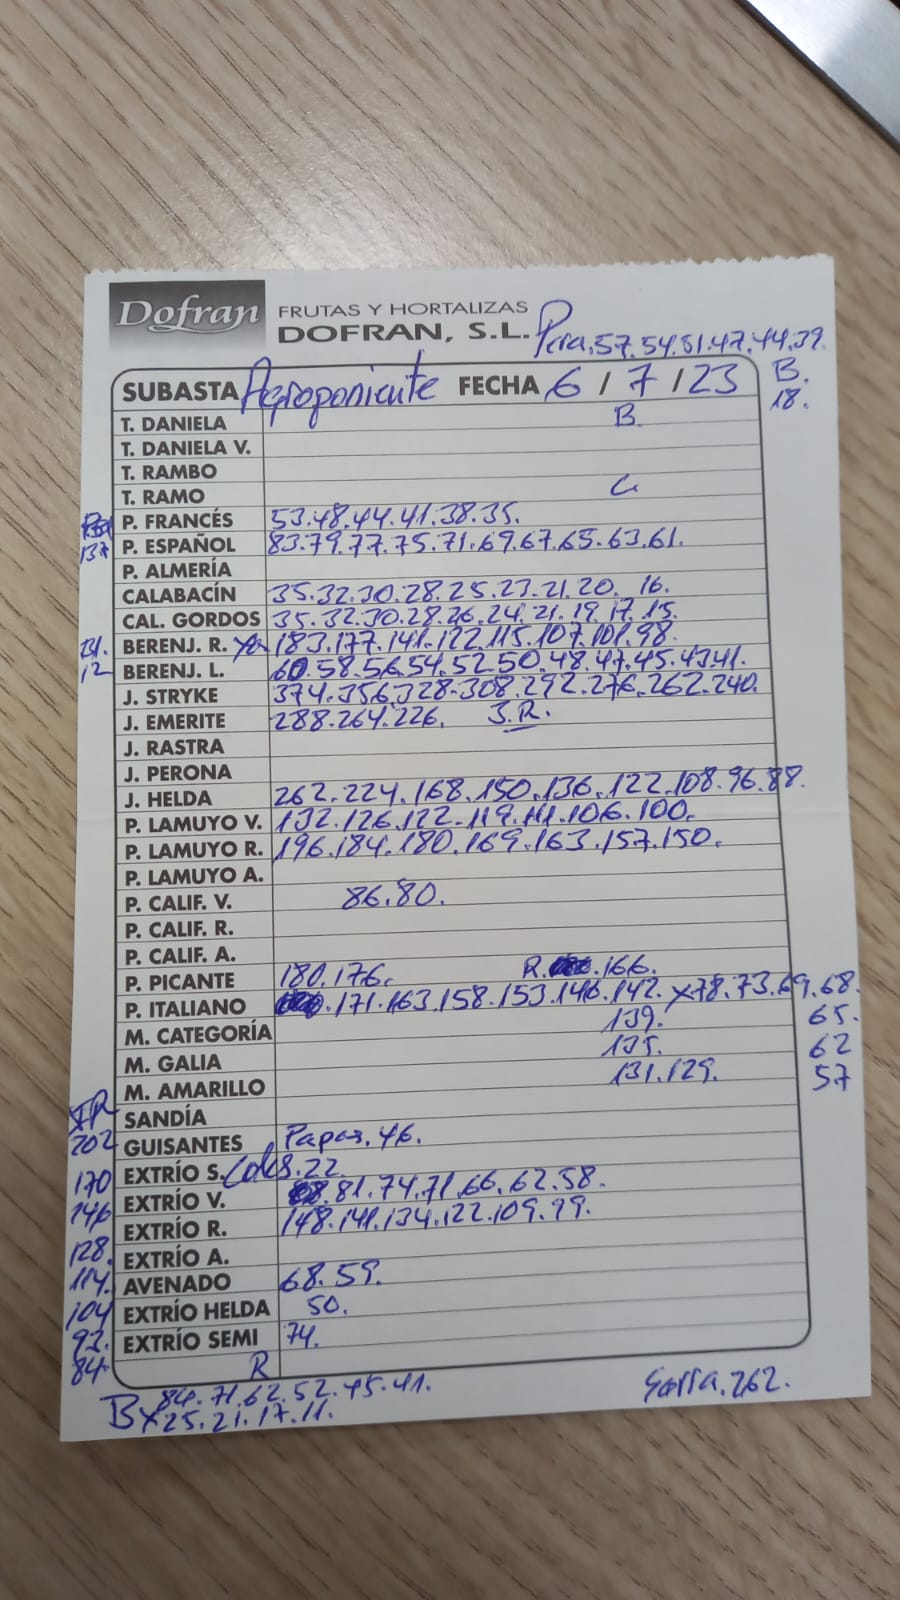 Dofran FRUTAS Y HORTALIZAS
DOFRAN, S.L. Pera.57.54.51.47.44.39.
SUBASTA Agroponiente FECHA 6 / 7 / 23 B.
18.
T. DANIELA B.
T. DANIELA V.
T. RAMBO
T. RAMO
P. FRANCÉS 53.48.44.41.38.35.
137 P. ESPAÑOL 83.79.77.75.71.69.67.65.63.61.
P. ALMERÍA
CALABACÍN 35.32.30.28.25.23.21.20. 16.
CAL. GORDOS 35.32.30.28.26.24.21.19.17.15.
BERENJ. R. 183.177.141.122.115.107.101.98.
12 BERENJ. L. 60.58.56.54.52.50.48.47.45.43.41.
J. STRYKE 374.356.328.308.292.276.262.240.
J. EMERITE 288.264.226. J.R.
J. RASTRA
J. PERONA
J. HELDA 262.224.168.150.136.122.108.96.88.
P. LAMUYO V. 132.126.122.119.111.106.100.
P. LAMUYO R. 196.184.180.169.163.157.150.
P. LAMUYO A.
P. CALIF. V. 86.80.
P. CALIF. R.
P. CALIF. A.
P. PICANTE 180.176. R. .166.
P. ITALIANO .171.163.158.153.146.142. x78.73.69.68.
M. CATEGORÍA 139. 65.
M. GALIA 135. 62
M. AMARILLO 131.129. 57
SANDÍA
202 GUISANTES Papas.46.
170 EXTRÍO S. Coles.22
146 EXTRÍO V. .81.74.71.66.62.58.
EXTRÍO R. 148.141.134.122.109.99.
128. EXTRÍO A.
114. AVENADO 68.59.
104 EXTRÍO HELDA 50.
92. EXTRÍO SEMI 74.
84. R
84.71.62.52.45.41.
B x25.21.17.11.
Garra.262.